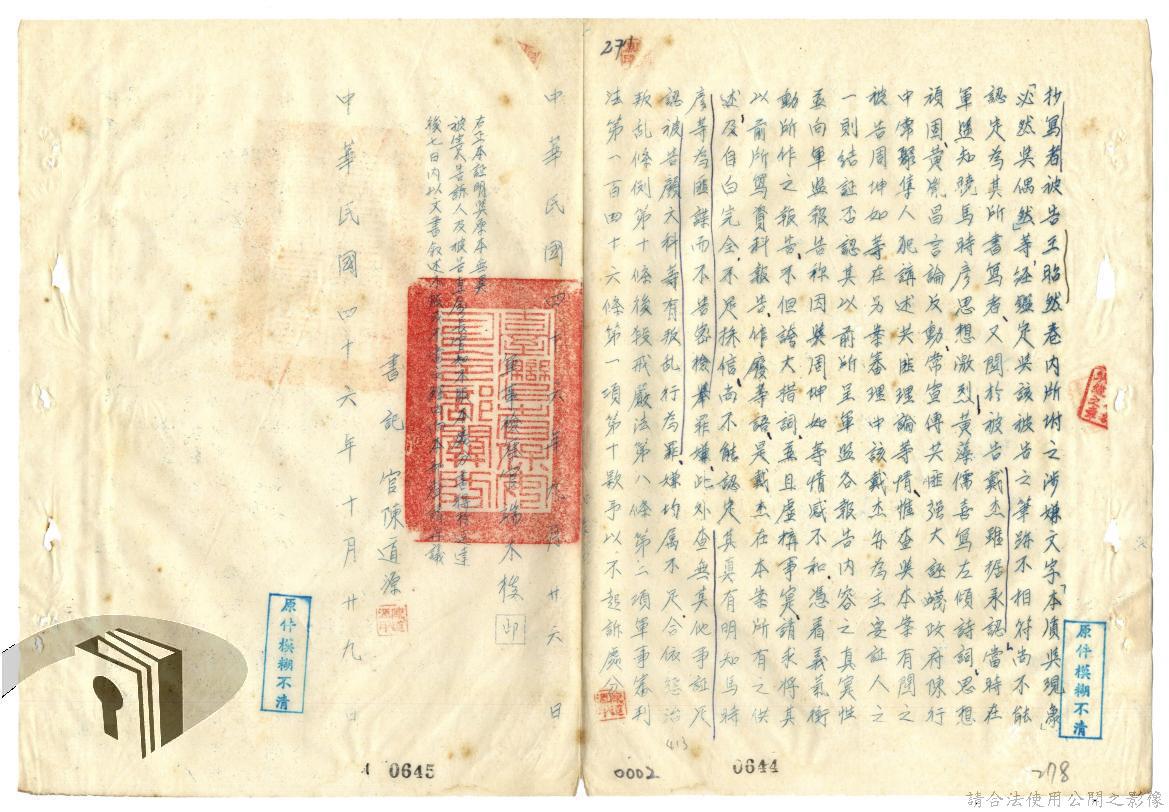 271
抄寫者被告王昭然卷內所附之涉嫌文字「本質與現象」
「必然與偶然」等、經鑑定與該被告之筆跡不相符尚不能
認定為其所書寫者、又關於被告戴杰雖據承認當時在
軍監知曉馬時彥思想激烈、黃藻儒喜寫左傾詩詞、思想
頑固、黃胤昌言論反動、常宣傳共匪強大誣衊政府陳行
中常聚集人犯講述共匪理論等情、惟查與本案有關之
被告周坤如等在另案審理中該戴杰亦為主要証人之
一則結証否認其以前所呈軍監各報告內容之真實性
並向軍監報告稱因與周坤如等情感不和、憑着義氣衝
動所作之報告、不但誇大措詞、並且虛構事實、請求將其
以前所寫資料報告、作廢等語、是戴杰在本案所有之供
述及自白完全不足採信尚不能認定其真有明知馬時
彥等為匪諜而不告密檢舉罪嫌、此外查無其他事証足
認被告顏大科等有叛乱行為、罪嫌均属不足、合依懲治
叛乱條例第十條後段戒嚴法第八條第二項軍事審判
法第一百四十六條第一項第十款予以不起訴處分
中華民國四十六年九月廿六日
軍事檢察官端木棪 印
右正本証明與原本無異
後七日內以文書敘述不服
書記官陳道源
中華民國四十六年十月廿九日
原件模糊不清
原件模糊不清
0645
0002
413
0644
278
請合法使用公開之影像